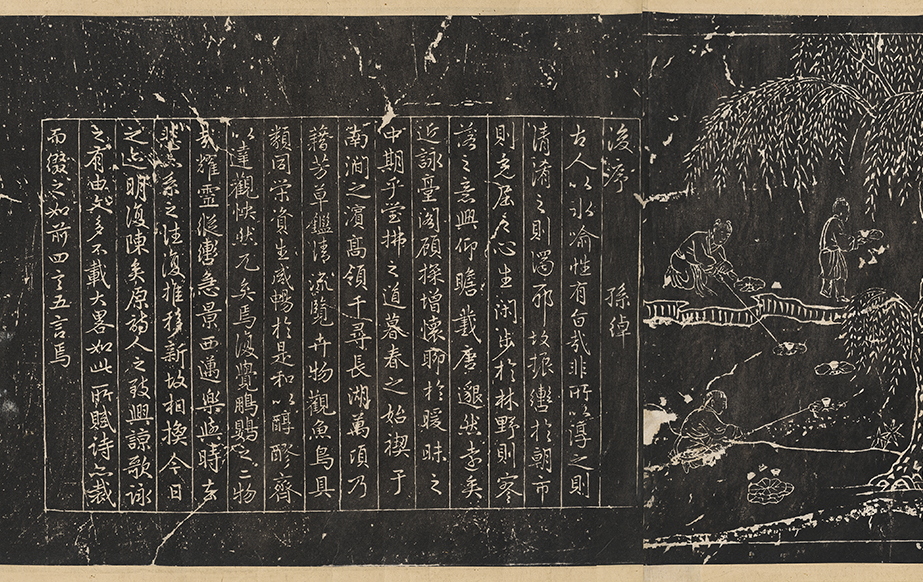 後序 孫綽
古人以水喻性有旨哉非所以渟之則
清淆之則濁邪故振轡於朝市
則充屈之心生閑步於林野則寥
落之意興仰瞻羲唐邈然遠矣
近詠臺閣顧探增懷聊於曖昧之
中期乎瑩拂之道暮春之始禊于
南澗之濱高領千尋長湖萬頃乃
藉芳草鑑清流覽卉物觀魚鳥具
類同榮資生咸暢於是和以醇醪齊
以達觀快然兀矣焉復覺鵬鷃之二物
哉耀靈縱轡急景西邁樂與時去
悲亦系之往復推移新故相換今日
之迹明復陳矣原詩人之致興諒歌詠
之有由文多不載大畧如此所賦詩亦裁
而綴之如前四言五言焉